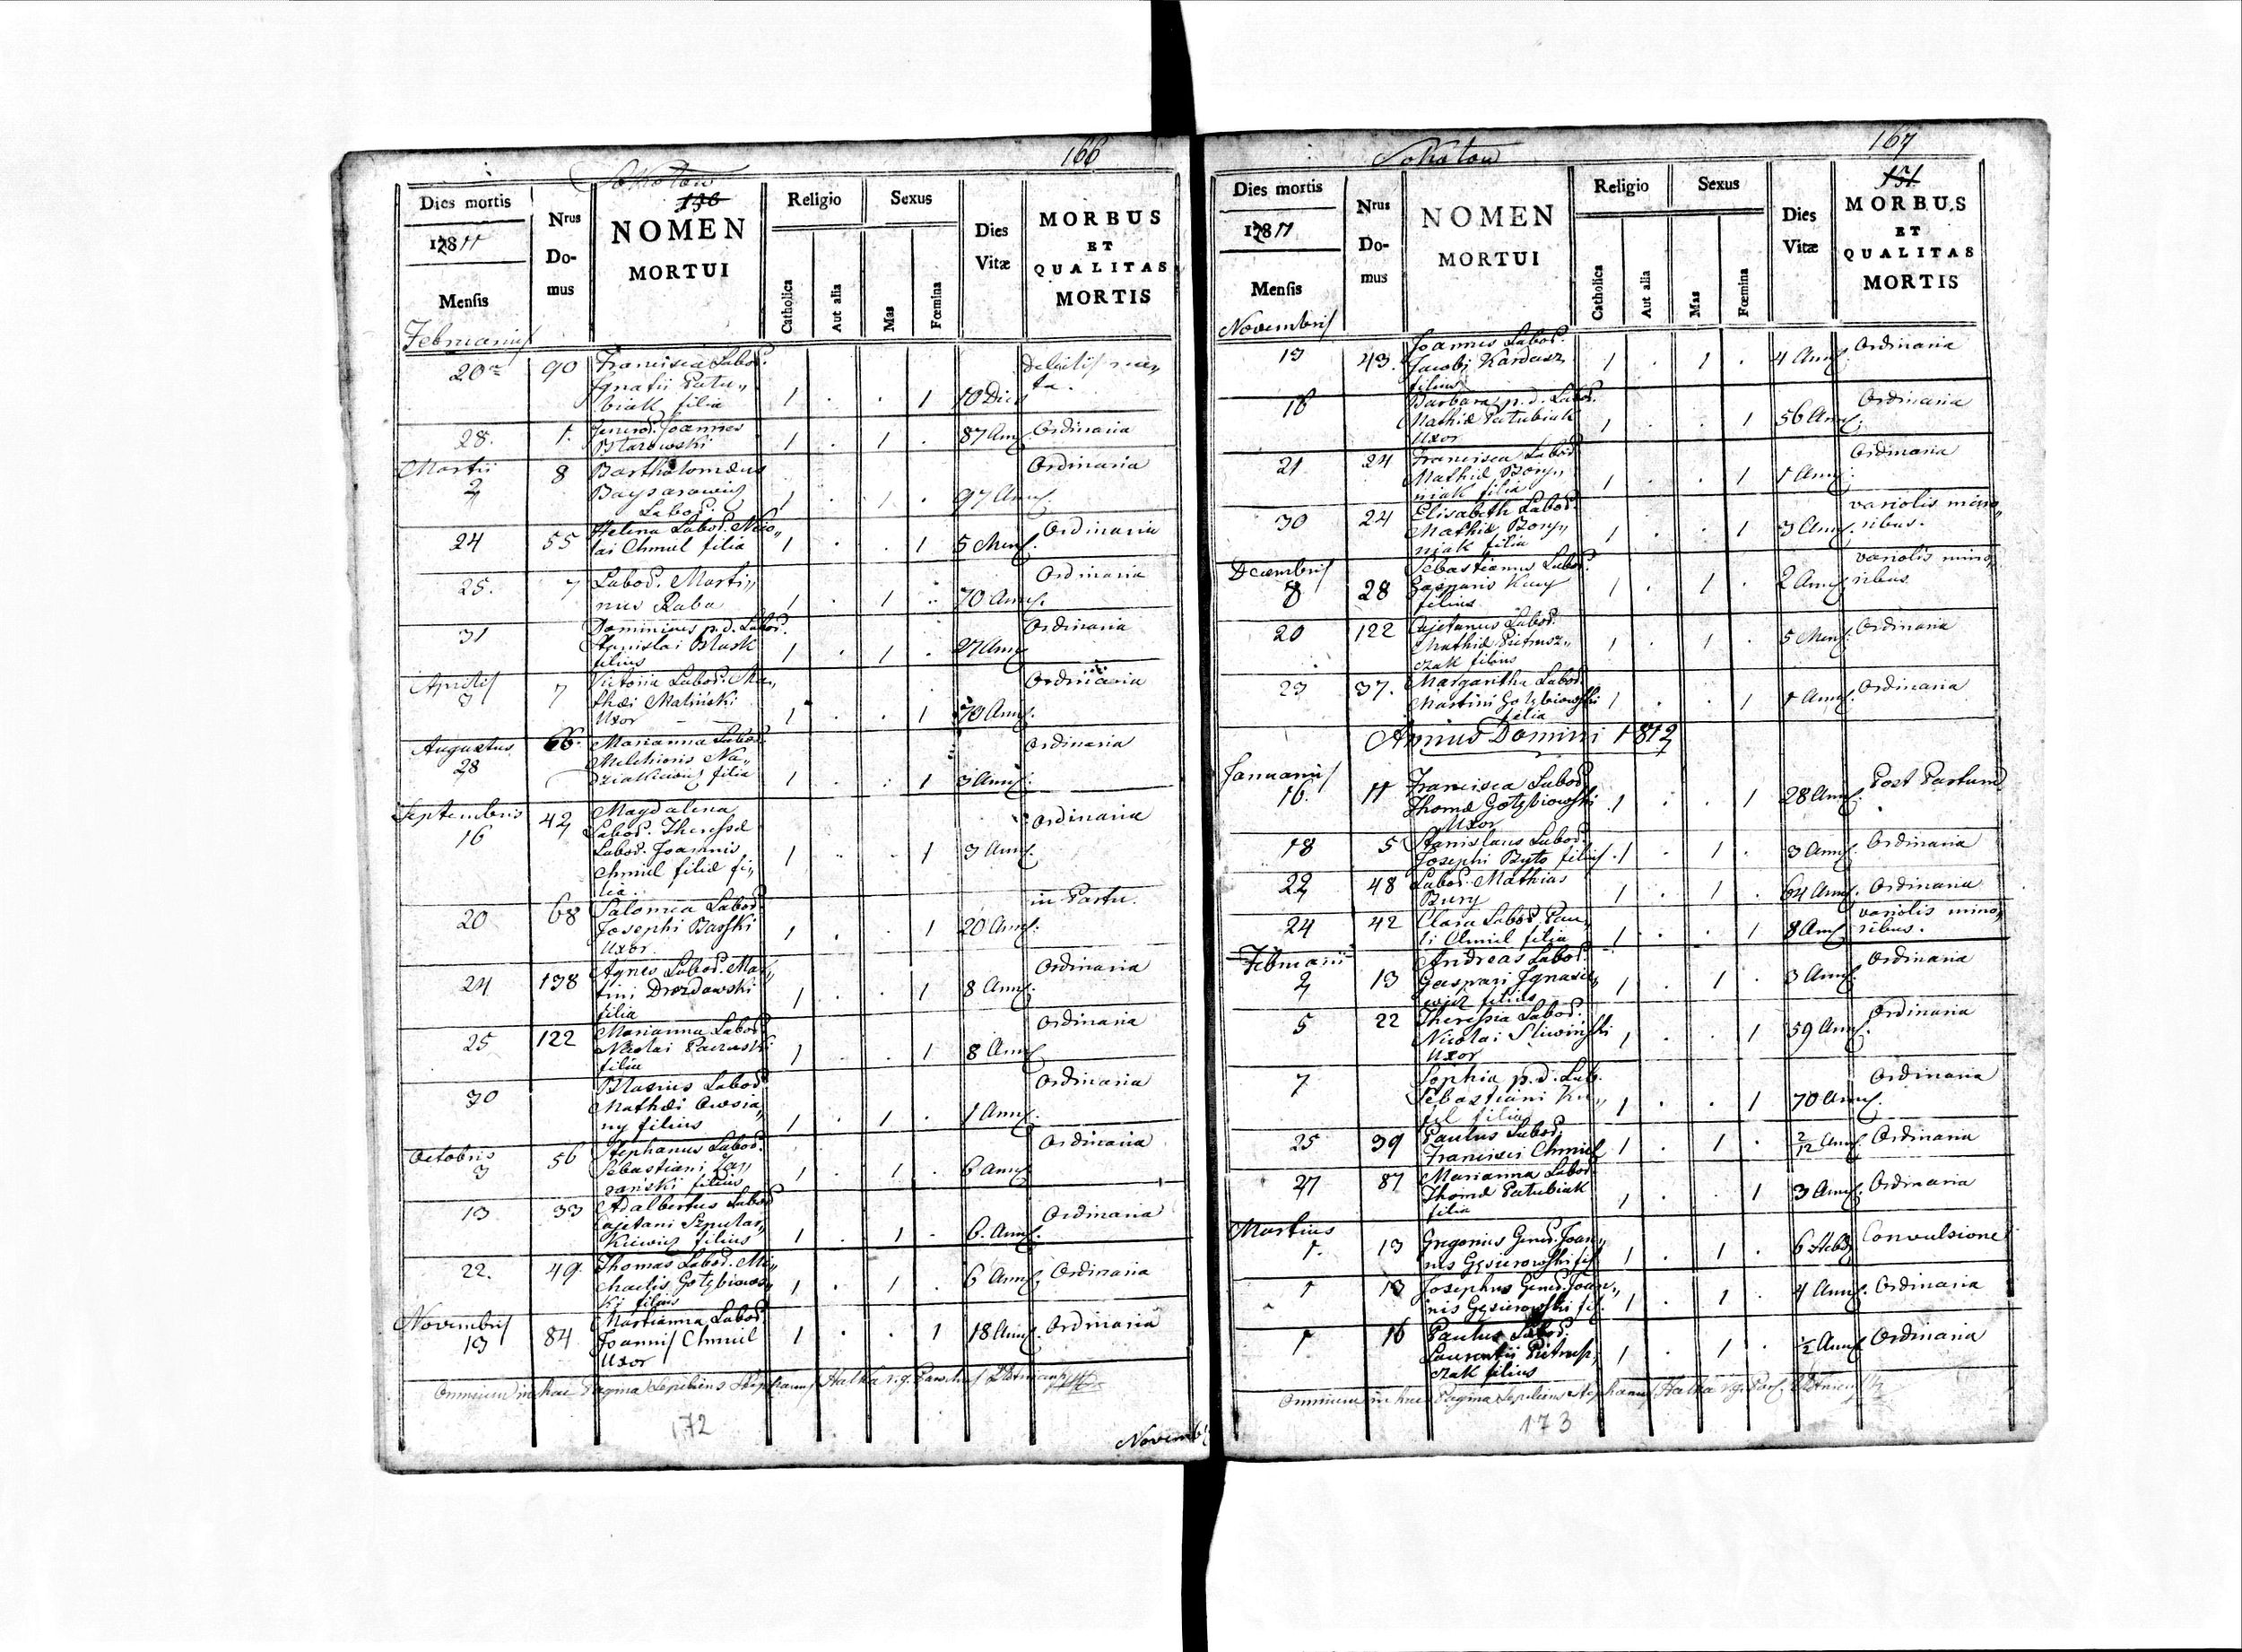 166
Sokołow
136
Dies mortis
1811
Mensis
Nrus Do-mus
NOMEN
MORTUI
Religio
Catholica
Aut alia
Sexus
Mas
Fœmina
Dies Vitæ
MORBUS
ET
QUALITAS
MORTIS
Februarius
20ma 90 Francisca Labor.
Ignatii Patu„
biak filia 1 . . 1 10 Dies
28. 1. Generos. Joannes
1 . 1 . 87 Ann. Ordinaria
Martii
2 8 Bartholomæus
Labor. 1 . 1 . 97 Ann. Ordinaria
24 55 Helena Labor. Nico„
lai Chmiel filia 1 . . 1 5 Mens. Ordinaria
25. 7 Labor. Marti„
nus Raba 1 . 1 . 70 Ann. Ordinaria
31 Dominicus p.d. Labor.
Stanislai Blask
filius 1 . 1 . 27 Ann. Ordinaria
Aprilis
3 7 Victoria Labor. Ma„
thæi Maliński
Uxor 1 . . 1 70 Ann. Ordinaria
Augustus
28 66. Marianna Labor.
Melchioris Na„
dziakiewicz filia 1 . . 1 3 Ann. Ordinaria
Septembris
16 42 Magdalena
Labor. Theressæ
Labor. Joannis
Chmiel filiæ fi„
lia. 1 . . 1 3 Ann. Ordinaria
20 68 Salomea Labor.
Josephi Barski
Uxor 1 . . 1 20 Ann. in Partu.
24 138 Agnes Labor. Mar„
tini Drozdowski
filia 1 . . 1 8 Ann. Ordinaria
25 122 Marianna Labor.
Nicolai
filia 1 . . 1 8 Ann. Ordinaria
30 Blasius Labor.
Mathæi Owsia„
ny filius 1 . 1 . 1 Ann. Ordinaria
Octobris
3 56 Stephanus Labor.
Sebastiani Za„
rański filius 1 . 1 . 6 Ann. Ordinaria
13 33 Adalbertus Labor.
Cajetani Szpular„
kiewicz filius 1 . 1 . 6. Ann. Ordinaria
22. 49 Thomas Labor. Mi„
chaelis Gołębiows„
ki filius 1 . 1 . 6 Ann. Ordinaria
Novembris
13 84 Marianna Labor.
Joannis Chmiel
Uxor 1 . . 1 18 Ann. Ordinaria
Omnium in hac Pagina Sepeliens Stephanus Hałka
172
Novemb
167
Sokołow
151
Dies mortis
1811
Mensis
Nrus Do-mus
NOMEN
MORTUI
Religio
Catholica
Aut alia
Sexus
Mas
Fœmina
Dies Vitæ
MORBUS
ET
QUALITAS
MORTIS
Novembris
13 43. Joannes Labor.
Jacobi Kardasz
filius 1 . 1 . 4 Ann. Ordinaria
16 Barbara p.d. Labor.
Mathiæ Patubiak
Uxor 1 . . 1 56 Ann. Ordinaria
21 24 Francisca Labor.
Mathiæ Bory„
niak filia 1 . . 1 1 Ann. Ordinaria
30 24 Elisabeth Labor.
Mathiæ Bory„
niak filia 1 . . 1 3 Ann. variolis mino„
ribus.
Decembris
8 28 Sebastianus Labor.
Gasparis
filius 1 . 1 . 2 Ann. variolis mino„
ribus
20 122 Cajetanus Labor.
Mathiæ Pietrusz„
czak filius 1 . 1 . 5 Mens. Ordinaria
23 37. Margaritha Labor.
Martini Gołębiowski
filia 1 . . 1 1 Ann. Ordinaria
Annus Domini 1812
Januarius
16. 11 Francisca Labor.
Thomæ Gołębiowski
Uxor 1 . . 1 28 Ann. Post Partum
18 5 Stanislaus Labor.
Josephi Byto filius 1 . 1 . 3 Ann. Ordinaria
22 48 Labor. Mathias
Bury 1 . 1 . 64 Ann. Ordinaria
24 42 Clara Labor. Pau„
li Chmiel filia 1 . . 1 8 Ann. variolis mino„
ribus.
Februarii
2 13 Andreas Labor.
Gaspari Ignasie„
wicz filius 1 . 1 . 3 Ann. Ordinaria
5 22 Theressia Labor.
Nicolai Sliwiński
Uxor 1 . . 1 59 Ann. Ordinaria
7 Sophia p.d. Lab.
Sebastiani
filia 1 . . 1 70 Ann. Ordinaria
25 39 Paulus Labor.
Francisci Chmiel 1 . 1 . 2/12 Ann. Ordinaria
27 87 Marianna Labor.
Thomæ Patubiak
filia 1 . . 1 3 Ann. Ordinaria
Martius
1. 13 Gregorius Gener. Joan„
nis Gęsierowski fil. 1 . 1 . 6 Hebd. Convulsione
1 13 Josephus Gener. Joan„
nis Gęsierowski fil. 1 . 1 . 4 Ann. Ordinaria
1 16 Paulus Labor.
Laurentii Pietrusz„
czak filius 1 . 1 . 1/2 Ann. Ordinaria
Omnium in hac Pagina Sepeliens Stephanus Hałka
173